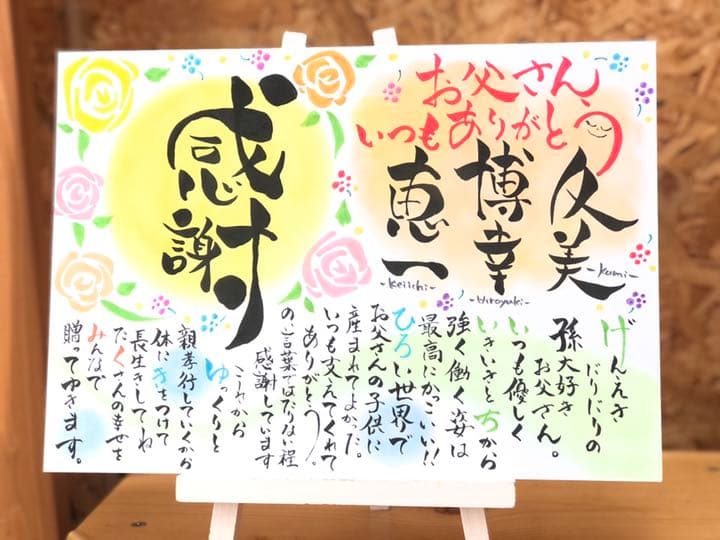 お父さん、
いつもありがとう
久美
-Kumi-
博幸
-Hiroyuki-
恵一
-Keiichi-
感謝
げんえき
ばりばりの
孫大好き
お父さん。
いつも優しく
いきいきとちから
強く働く姿は
最高にかっこいい!!
ひろい世界で
お父さんの子供に
産まれてよかった。
いつも支えてくれて
ありがとう。
の言葉では足りない程
感謝しています
これから
ゆっくりと
親孝行していくから
体にきをつけて
長生きしてね
たくさんの幸せを
みんなで
贈ってゆきます。